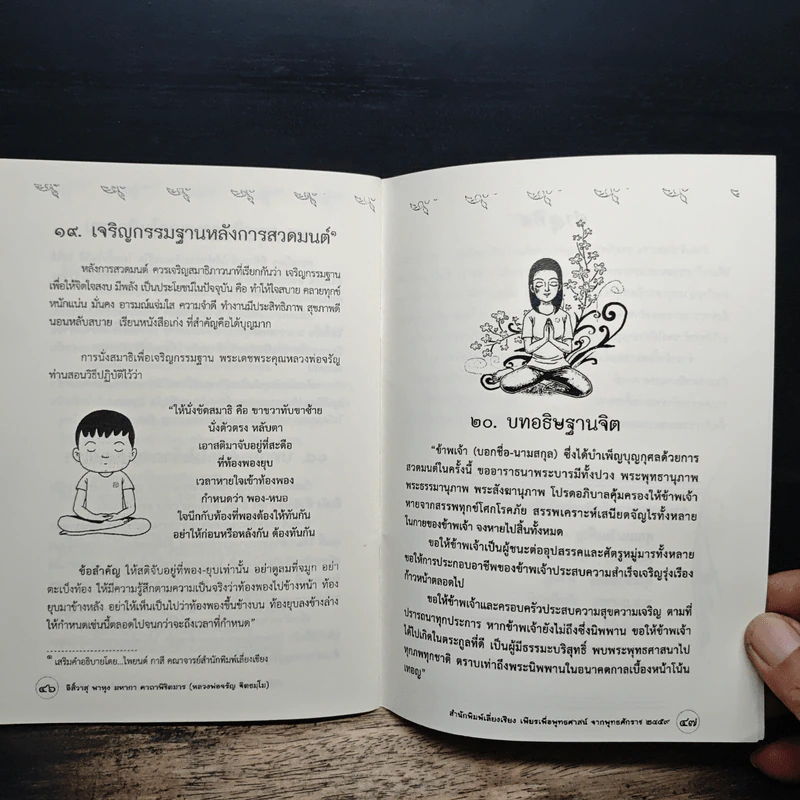 ๑๙. เจริญกรรมฐานหลังการสวดมนต์๑
หลังการสวดมนต์ ควรเจริญสมาธิภาวนาที่เรียกกันว่า เจริญกรรมฐาน
เพื่อให้จิตใจสงบ มีพลัง เป็นประโยชน์ในปัจจุบัน คือ ทำให้ใจสบาย คลายทุกข์
หนักแน่น มั่นคง อารมณ์แจ่มใส ความจำดี ทำงานมีประสิทธิภาพ สุขภาพดี
นอนหลับสบาย เรียนหนังสือเก่ง ที่สำคัญคือได้บุญมาก
การนั่งสมาธิเพื่อเจริญกรรมฐาน พระเดชพระคุณหลวงพ่อจรัญ
ท่านสอนวิธีปฏิบัติไว้ว่า
“ให้นั่งขัดสมาธิ คือ ขาขวาทับขาซ้าย
นั่งตัวตรง หลับตา
เอาสติมาจับอยู่ที่สะดือ
ที่ท้องพองยุบ
เวลาหายใจเข้าท้องพอง
กำหนดว่า พอง-หนอ
ใจนึกกับท้องที่พองต้องให้ทันกัน
อย่าให้ก่อนหรือหลังกัน ต้องทันกัน
ข้อสำคัญ ให้สติจับอยู่ที่พอง-ยุบเท่านั้น อย่าดูลมที่จมูก อย่า
ตะเบ็งท้อง ให้มีความรู้สึกตามความเป็นจริงว่าท้องพองไปข้างหน้า ท้อง
ยุบมาข้างหลัง อย่าให้เห็นเป็นไปว่าท้องพองขึ้นข้างบน ท้องยุบลงข้างล่าง
ให้กำหนดเช่นนี้ตลอดไปจนกว่าจะถึงเวลาที่กำหนด”
๑ เสริมคำอธิบายโดย...ไพยนต์ กาสี คณาจารย์สำนักพิมพ์เลี่ยงเชียง
๔๖ อิสฺวาสุ พาหุง มหากา คาถาพิชิตมาร (หลวงพ่อจรัญ ฐิตธมฺโม)
๒๐. บทอธิษฐานจิต
“ข้าพเจ้า (บอกชื่อ-นามสกุล) ซึ่งได้บำเพ็ญบุญกุศลด้วยการ
สวดมนต์ในครั้งนี้ ขออาราธนาพระบารมีทั้งปวง พระพุทธานุภาพ
พระธรรมานุภาพ พระสังฆานุภาพ โปรดอภิบาลคุ้มครองให้ข้าพเจ้า
หายจากสรรพทุกข์โศกโรคภัย สรรพเคราะห์เสนียดจัญไรทั้งหลาย
ในกายของข้าพเจ้า จงหายไปสิ้นทั้งหมด
ขอให้ข้าพเจ้าเป็นผู้ชนะต่ออุปสรรคและศัตรูหมู่มารทั้งหลาย
ขอให้การประกอบอาชีพของข้าพเจ้าประสบความสำเร็จเจริญรุ่งเรือง
ก้าวหน้าตลอดไป
ขอให้ข้าพเจ้าและครอบครัวประสบความสุขความเจริญ ตามที่
ปรารถนาทุกประการ หากข้าพเจ้ายังไม่ถึงซึ่งนิพพาน ขอให้ข้าพเจ้า
ได้ไปเกิดในตระกูลที่ดี เป็นผู้มีธรรมะบริสุทธิ์ พบพระพุทธศาสนาไป
ทุกภพทุกชาติ ตราบเท่าถึงพระนิพพานในอนาคตกาลเบื้องหน้าโน้น
เทอญ”
สำนักพิมพ์เลี่ยงเชียง เพียรเพื่อพุทธศาสน์ จากพุทธศักราช ๒๔๕๙ ๔๗